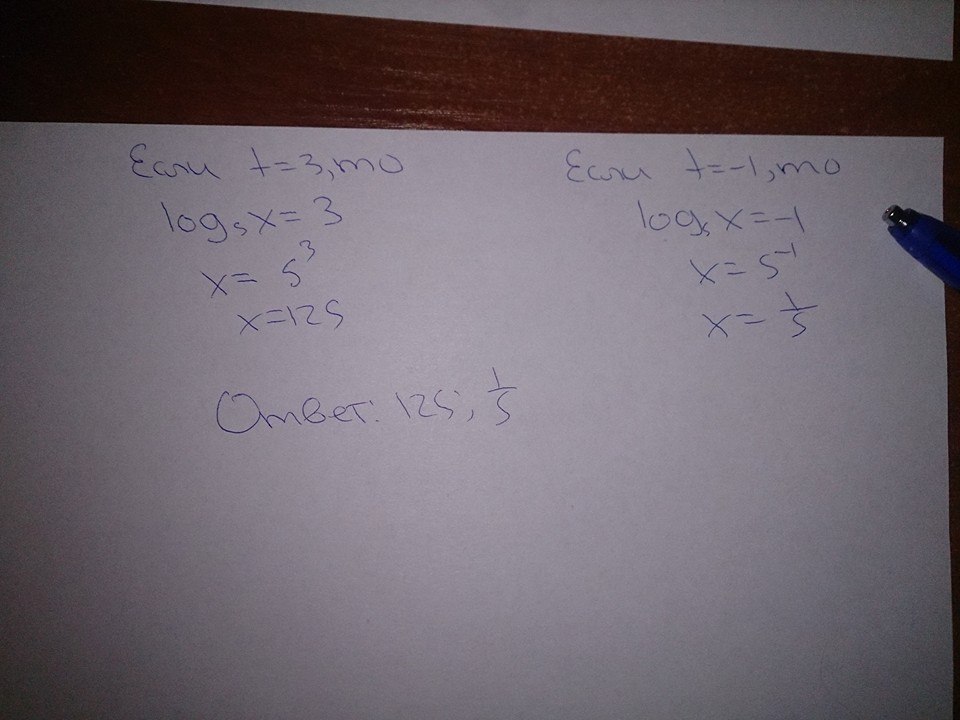 Если t=3, то
log₅x=3
x=5³
x=125
Если t=-1, то
log₅x=-1
x=5⁻¹
x=1/5
Ответ: 125; 1/5